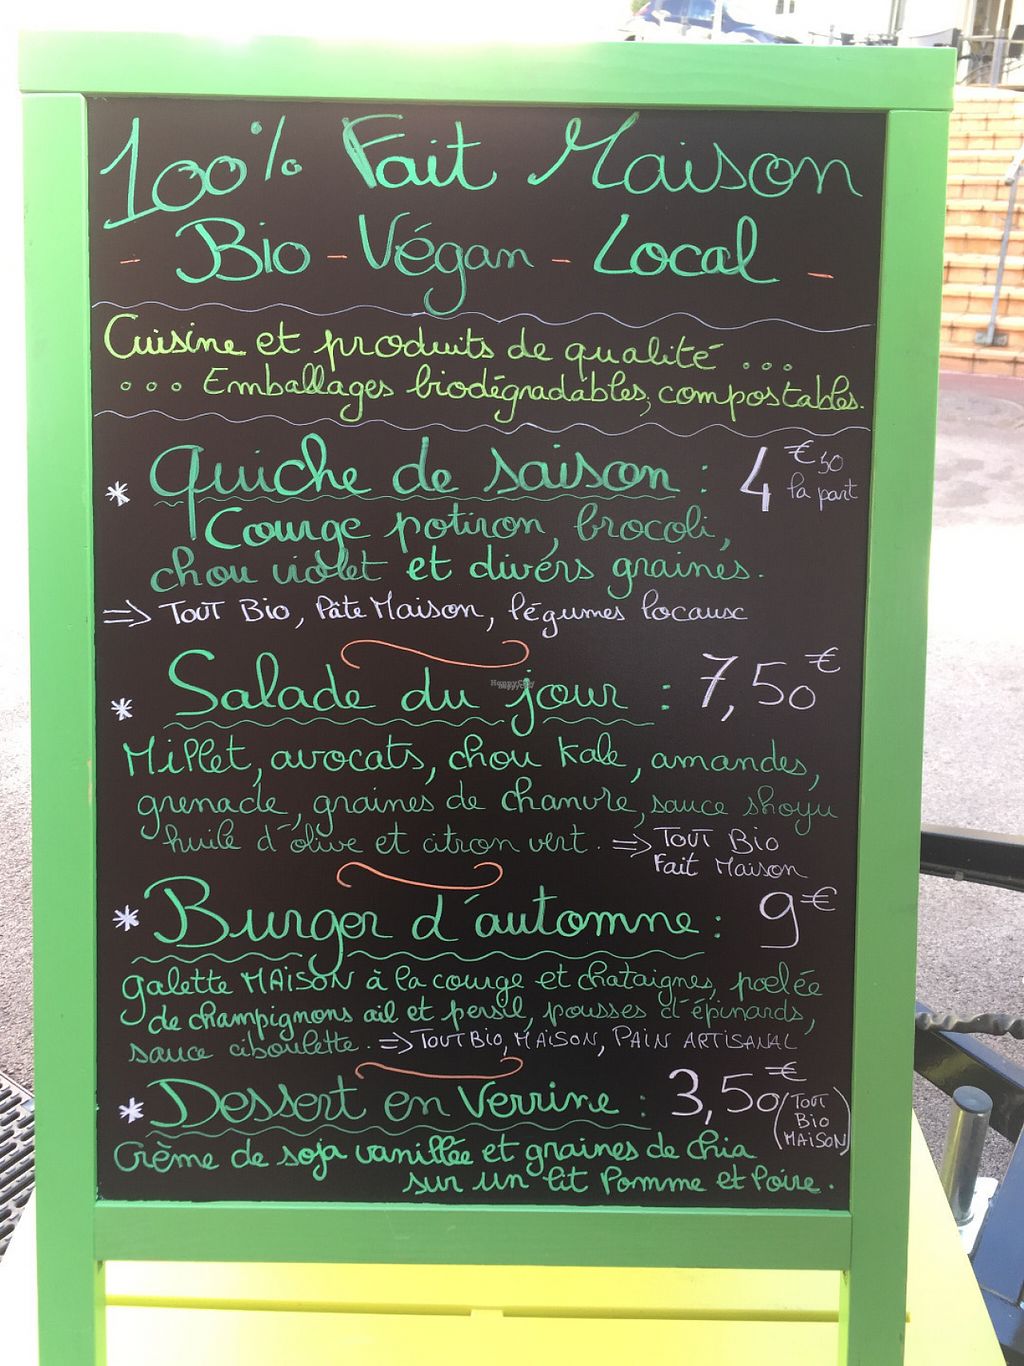 100% Fait Maison
- Bio - Végan - Local -
Cuisine et produits de qualité ...
... Emballages biodégradables, compostables.
* Quiche de saison : 4 €50 la part
Courge potiron, brocoli,
chou violet et divers graines.
=> TOUT BIO, Pâte Maison, légumes locaux
* Salade du jour : 7,50 €
Millet, avocats, chou kale, amandes,
grenade, graines de chanvre, sauce shoyu
huile d'olive et citron vert. => TOUT BIO
Fait Maison
* Burger d'automne : 9 €
galette MAISON à la courge et chataignes, poelée
de champignons ail et persil, pousses d'épinards,
sauce ciboulette. => TOUT BIO, MAISON, PAIN ARTISANAL
* Dessert en Verrine : 3,50 € (TOUT BIO MAISON)
Crème de soja vanillée et graines de chia
sur un lit Pomme et Poire.
HappyCow